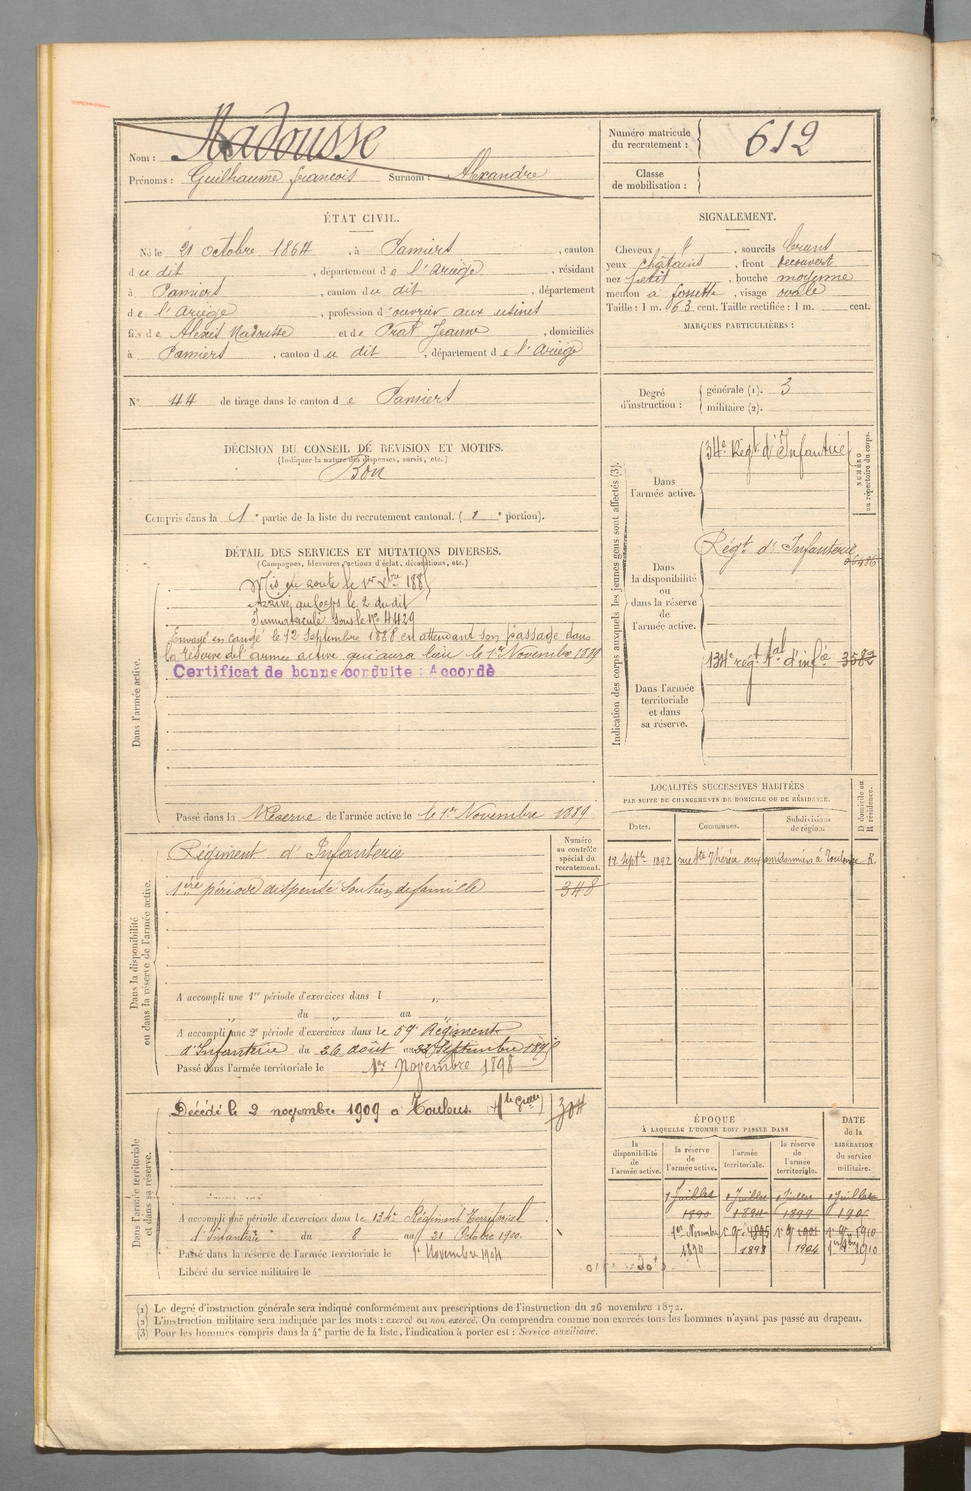 Nom : Nadousse
Prénoms : Guilhaume françois Surnom : Alexandre
Numéro matricule du recrutement : 612
Classe de mobilisation :
ÉTAT CIVIL.
Né le 21 octobre 1864, à Pamiers, canton
du dit, département de l'Ariège, résidant
à Pamiers, canton du dit, département
de l'Ariège, profession d'ouvrier aux usines
fils de Alexis Nadousse et de Prat Jeanne, domiciliés
à Pamiers, canton du dit, département de l'Ariège
SIGNALEMENT.
Cheveux et, sourcils bruns
yeux chatains, front découvert
nez petit, bouche moyenne
menton à fossette, visage ovale
Taille : 1 m. 63 cent. Taille rectifiée : 1 m. cent.
MARQUES PARTICULIÈRES :
N° 44 de tirage dans le canton de Pamiers
Degré d'instruction : générale (1). 3
militaire (2).
DÉCISION DU CONSEIL DE REVISION ET MOTIFS.
(Indiquer la nature des dispenses, sursis, etc.)
Bon
Compris dans la 1e partie de la liste du recrutement cantonal. (1e portion).
DÉTAIL DES SERVICES ET MUTATIONS DIVERSES.
(Campagnes, blessures, actions d'éclat, décorations, etc.)
Dans l'armée active.
Mis en route le 1er Xbre 188
Arrivé au Corps le 2 du dit
Immatriculé sous le N° 4429
Envoyé en congé le 12 Septembre 1888 en attendant son passage dans
la réserve de l'armée active qui aura lieu le 1er Novembre 1889
Certificat de bonne conduite : Accordé
Passé dans la Réserve de l'armée active le 1er Novembre 1889
Indication des corps auxquels les jeunes gens sont affectés (3).
NUMÉRO au répertoire du corps.
Dans l'armée active.
34e Régt d'Infantrie
Dans la disponibilité ou dans la réserve de l'armée active.
Régt d'Infanterie
Dans l'armée territoriale et dans sa réserve.
134e régt tal d'infie 3582
LOCALITÉS SUCCESSIVES HABITÉES
PAR SUITE DE CHANGEMENTS DE DOMICILE OU DE RÉSIDENCE.
Dates. Communes. Subdivisions de région. D domicile ou R résidence.
12 Septbe 1892 rue Ste Thérèse aux amidonniers à Toulouse R.
Dans la disponibilité ou dans la réserve de l'armée active.
Numéro au contrôle spécial du recrutement.
Régiment d'Infanterie
1ère période dispensé Soutien de famille 348
A accompli une 1re période d'exercices dans l "
" du " au "
A accompli une 2e période d'exercices dans le 59e Régiment
d'Infanterie du 26 août au 22 Septembre 189
Passé dans l'armée territoriale le 1er Novembre 1898
Dans l'armée territoriale et dans sa réserve.
Décédé le 2 novembre 1909 a Toulouse 304
A accompli une période d'exercices dans le 134e Régiment Territorial
d'Infanterie du 8 au 21 Octobre 1900.
Passé dans la réserve de l'armée territoriale le 1er Novembre 1904
Libéré du service militaire le
ÉPOQUE
À LAQUELLE L'HOMME DOIT PASSER DANS
DATE de la LIBÉRATION du service militaire.
la disponibilité de l'armée active. la réserve de l'armée active. l'armée territoriale. la réserve de l'armée territoriale.
1 Juillet 1 Juillet 1 Juillet 1 Juillet
1890 1894 1899 190
1er Novembre 1895 1901 1910
1890 1898 1904 1910
(1) Le degré d'instruction générale sera indiqué conformément aux prescriptions de l'instruction du 26 novembre 1872.
(2) L'instruction militaire sera indiquée par les mots : exercé ou non exercé. On comprendra comme non exercés tous les hommes n'ayant pas passé au drapeau.
(3) Pour les hommes compris dans la 4e partie de la liste, l'indication à porter est : Service auxiliaire.